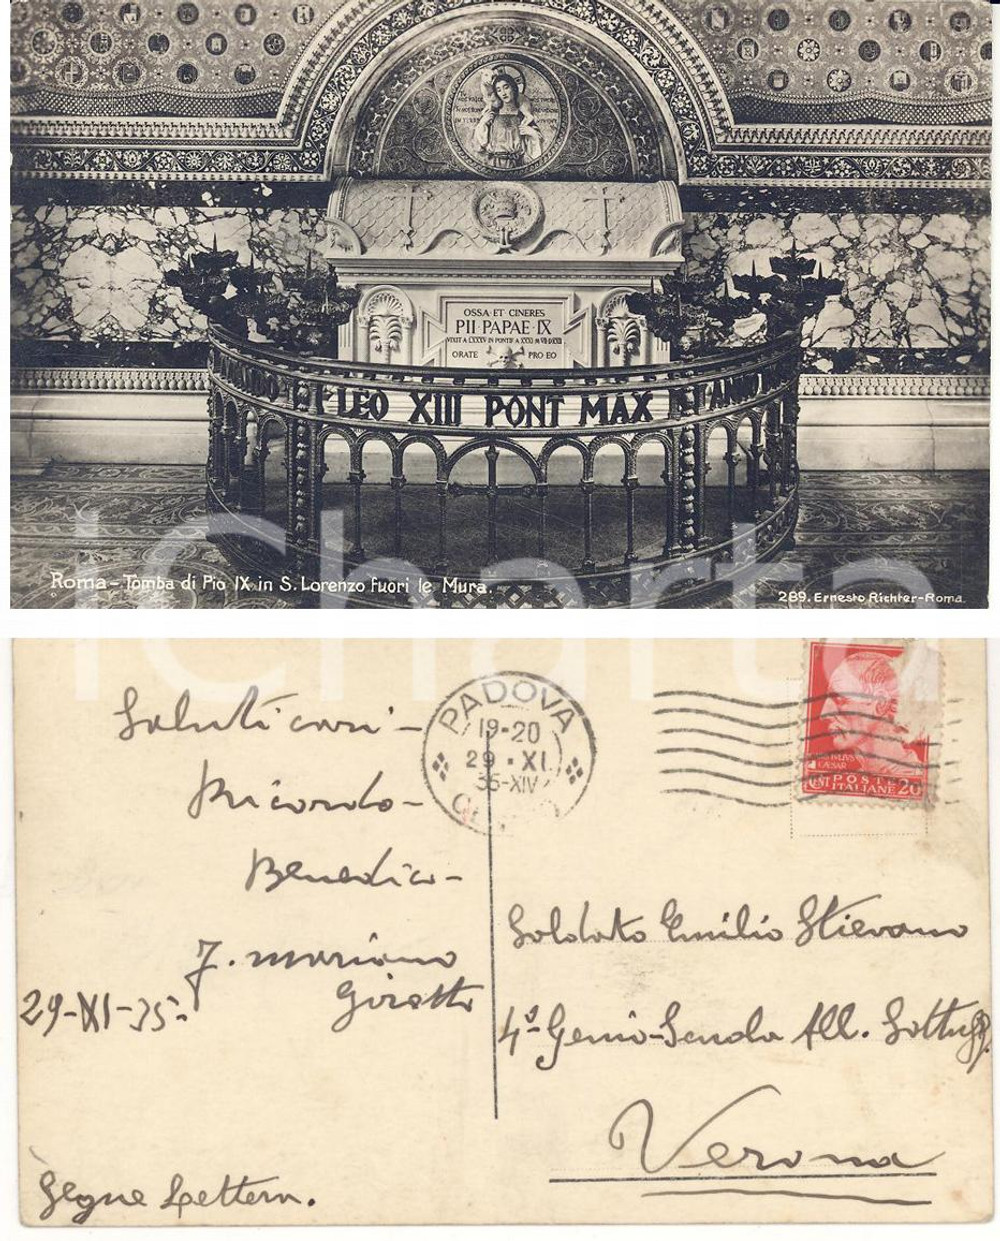 OSSA·ET CINERES
PII·PAPAE·IX
ORATE PRO EO
LEO XIII PONT MAX
ANNO
Roma – Tomba di Pio IX in S. Lorenzo fuori le Mura.
289. Ernesto Richter-Roma.
iCharta
PADOVA
19-20
29·XI.
35-XIV
CAESAR
CENT POSTE ITALIANE 20
Saluti cari –
Ricordo –
Benedico –
F. Mariano
Girotto
29-XI-35.
Segue Lettera.
Soldato Emilio Stievano
4°-Genio-Scuola All. Sottuff.
Verona